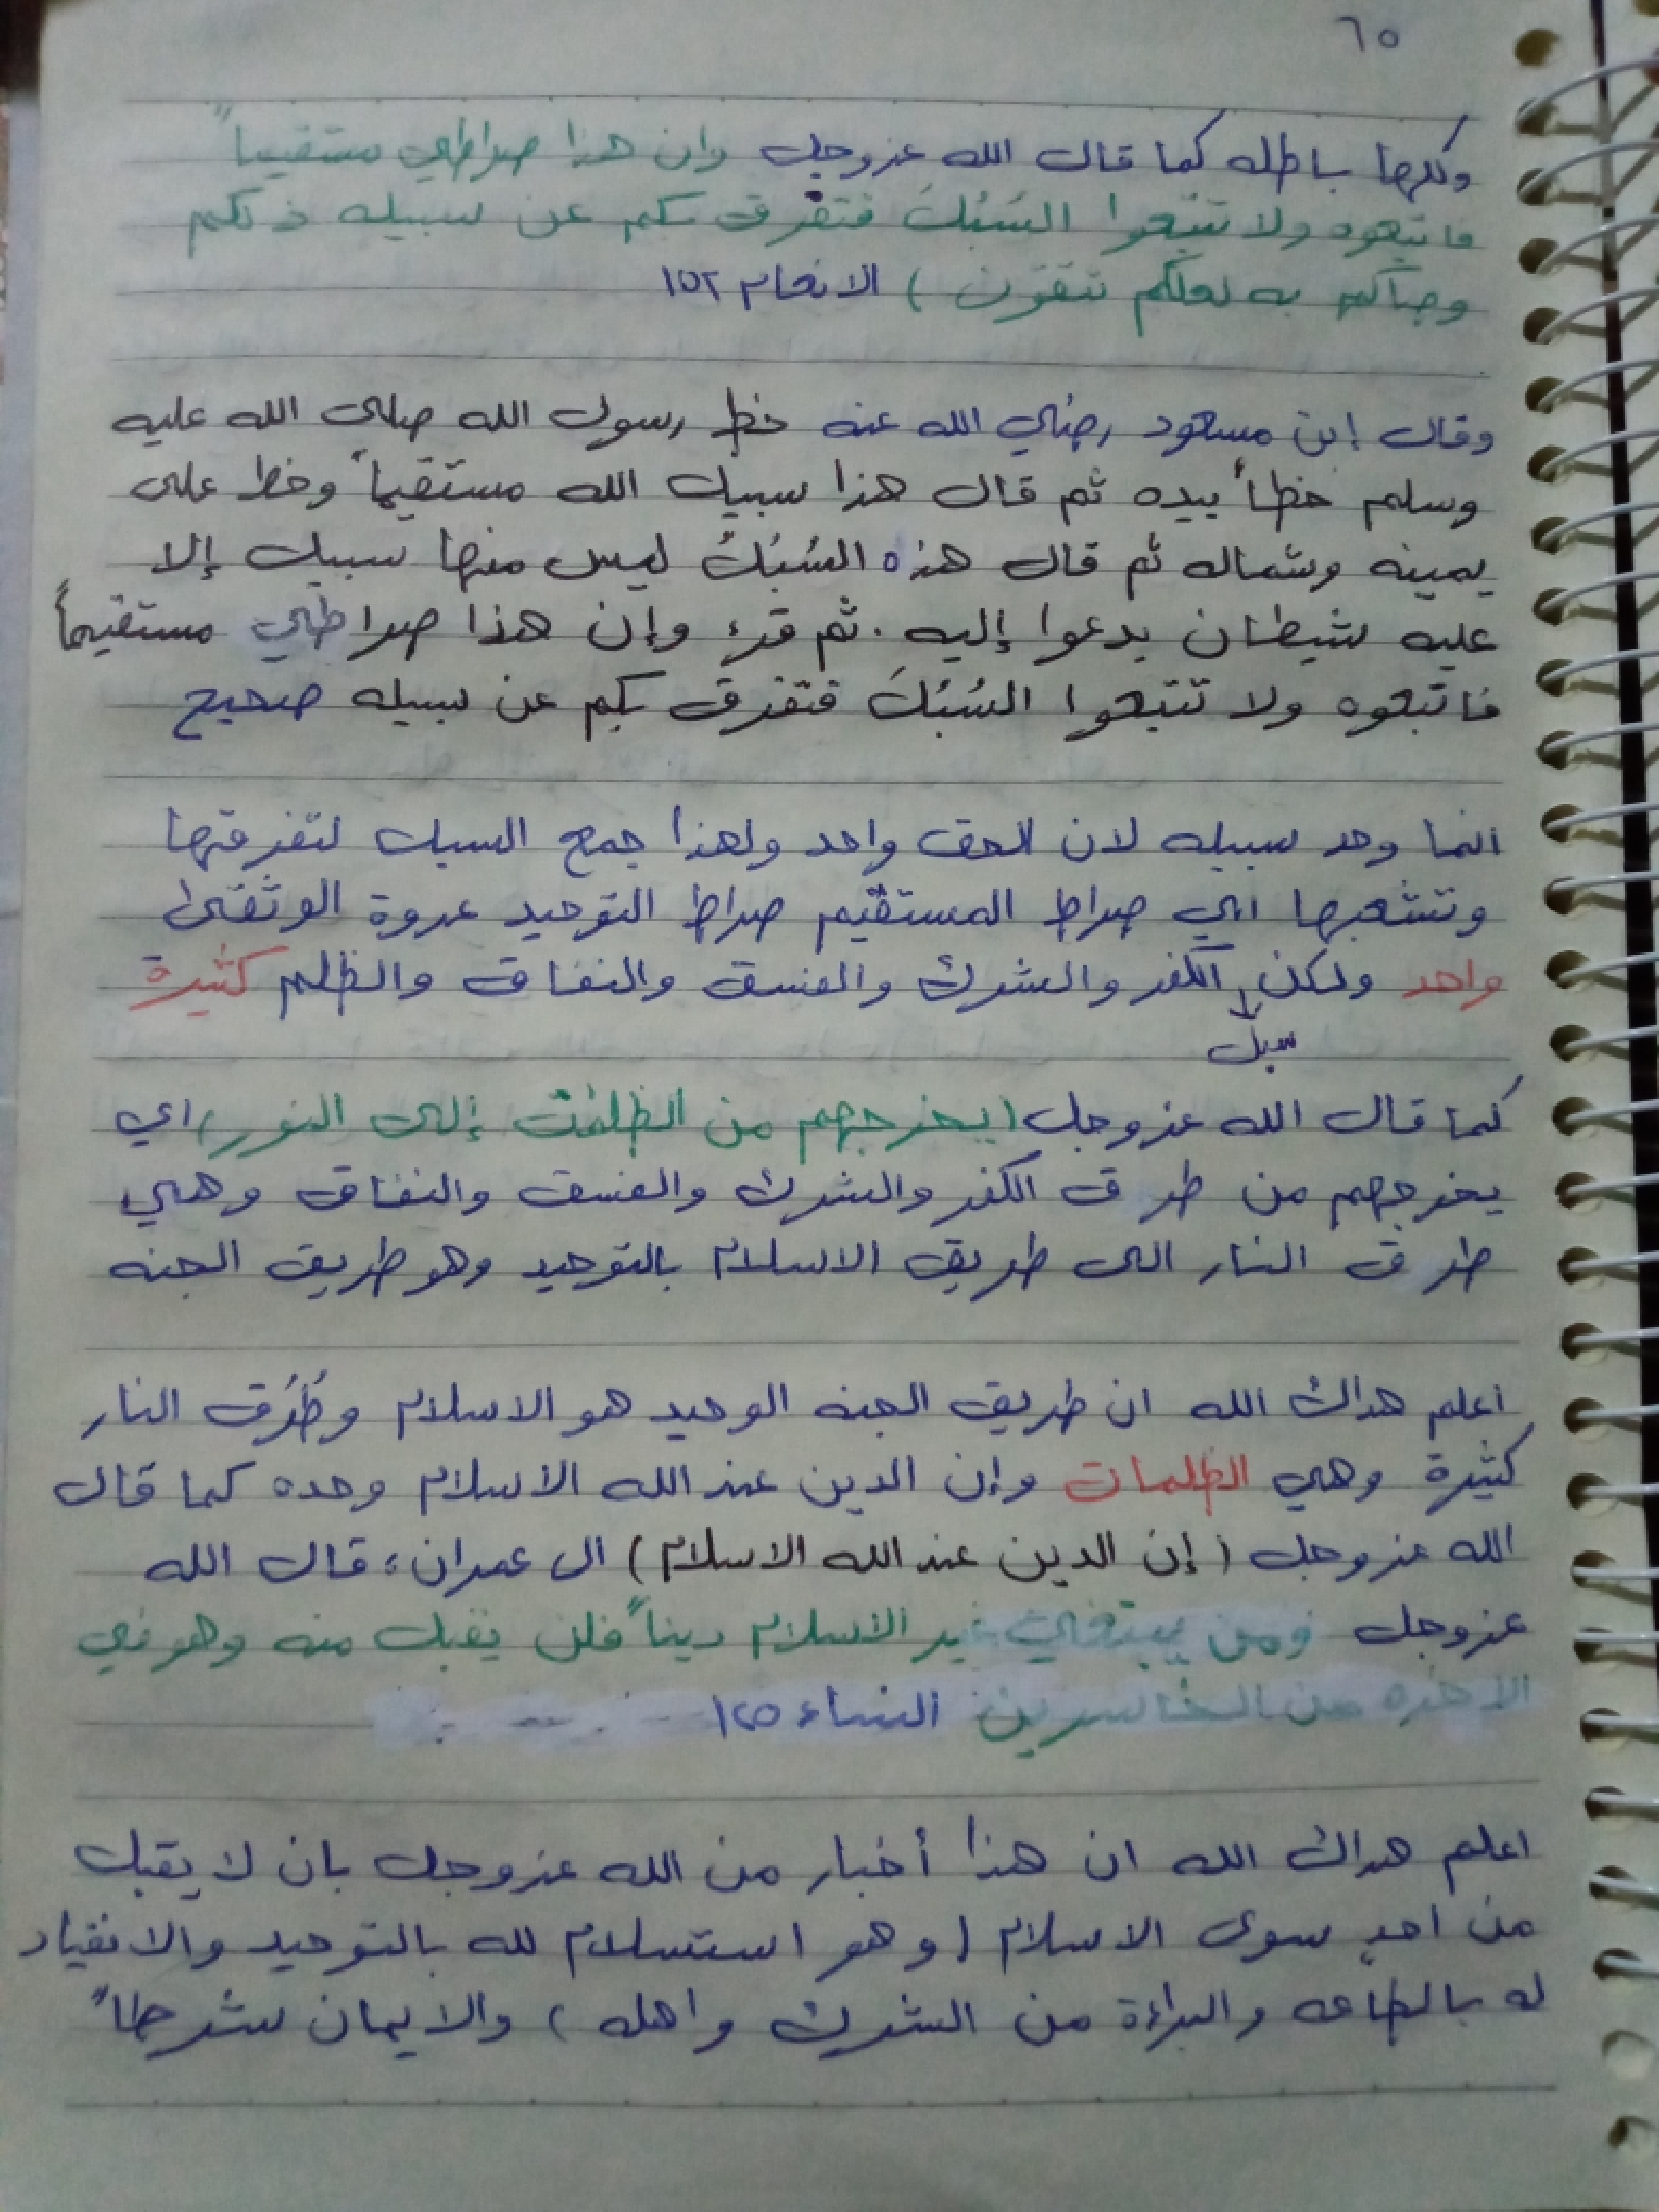 ٦٥
وكلها باطله كما قال الله عزوجل وان هذا صراطي مستقيماً
فاتبعوه ولا تتبعوا السُبُلَ فتفرق بكم عن سبيله ذلكم
وصاكم به لعلكم تتقون ) الانعام ١٥٢
وقال إبن مسعود رضي الله عنه خط رسول الله صلى الله عليه
وسلم خطاً بيده ثم قال هذا سبيل الله مستقيماً وخط على
يمينه وشماله ثم قال هذه السُبُلُ ليس منها سبيل إلا
عليه شيطان يدعوا إليه . ثم قرء وإن هذا صراطي مستقيماً
فاتبعوه ولا تتبعوا السُبُلَ فتفرق بكم عن سبيله صحيح
انما وحد سبيله لان الحق واحد ولهذا جمع السبل لتفرقها
وتشعبها اي صراط المستقيم صراط التوحيد عروة الوثقى
واحد ولكن الكفر والشرك والفسق والنفاق والظلم كثيرة
سبل
كما قال الله عزوجل (يخرجهم من الظلمٰت إلى النور) اي
يخرجهم من طرق الكفر والشرك والفسق والنفاق وهي
طرق النار الى طريق الاسلام بالتوحيد وهو طريق الجنه
اعلم هداك الله ان طريق الجنه الوحيد هو الاسلام وطُرُق النار
كثيرة وهي الظلمات وإن الدين عند الله الاسلام وحده كما قال
الله عزوجل (إن الدين عند الله الاسلام) ال عمران، قال الله
عزوجل ومن يبتغي غير الاسلام ديناً فلن يقبل منه وهو في
الاخره من الخاسرين النساء ١٢٥
اعلم هداك الله ان هذا أخبار من الله عزوجل بان لا يقبل
من احدٍ سوى الاسلام (وهو استسلام لله بالتوحيد والانقياد
له بالطاعه والبراءة من الشرك واهله) والايمان شرطاً